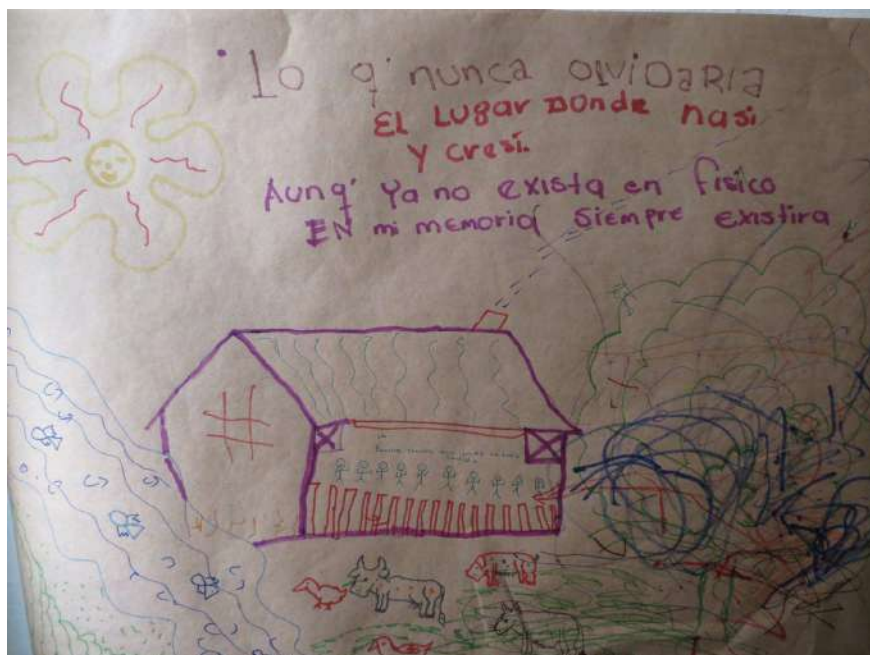 Lo q' nunca olviDaRia
EL LUGAR DONDE nasi
Y cresi.
Aunq' Ya no exista en fisico
EN mi memoria siempre existira